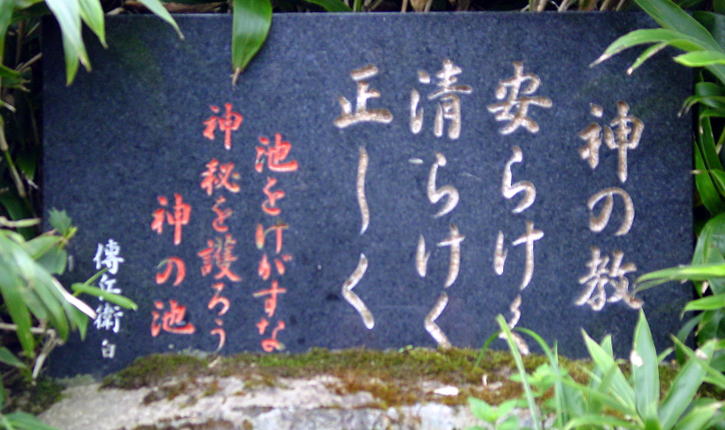 神の教
安らけく
清らけく
正しく
池をけがすな
神秘を護ろう
神の池
傳兵衛白